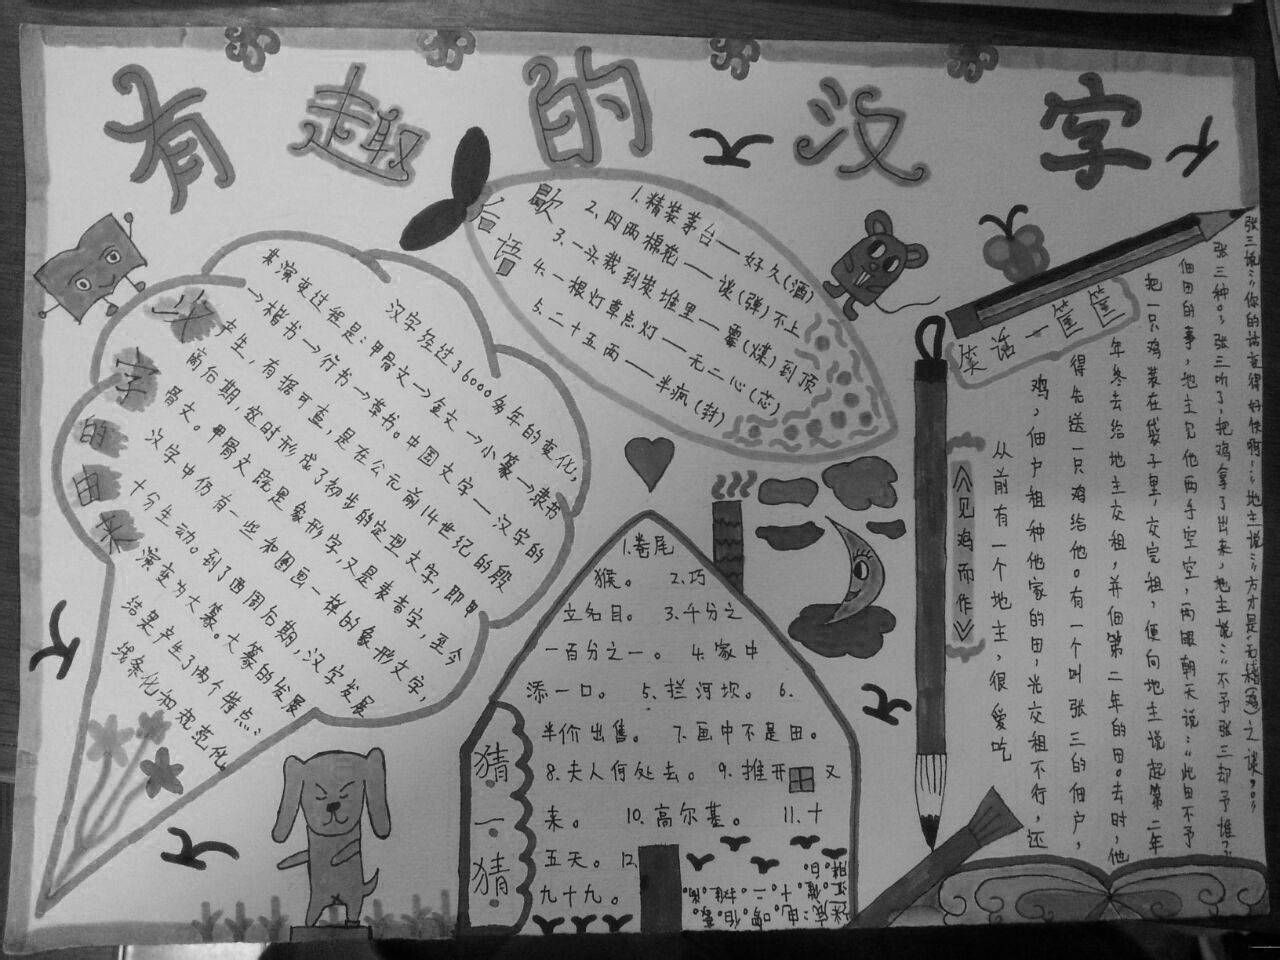 有趣的汉字
汉字的由来
汉字经过36000多年的变化,
其演变过程是:甲骨文→金文→小篆→隶书
→楷书→行书→草书。中国文字——汉字的
产生,有据可查,是在公元前14世纪的段
商后期,这时形成了初步的定型文字,即甲
骨文。甲骨文既是象形字,又是表音字,至今
汉字中仍有一些和图画一样的象形文字,
十分生动。到了西周后期,汉字发展
演变为大篆。大篆的发展
结果产生了两个特点:
线条化和规范化。
歇后语
1.精装茅台——好久(酒)
2.四两棉花——谈(弹)不上
3.一头栽到炭堆里——霉(煤)到顶
4.一根灯草点灯——无二心(芯)
5.二十五两——半疯(封)
猜一猜
1.卷尾
猴。 2.巧
立名目。 3.千分之
一百分之一。 4.家中
添一口。 5.拦河坝。 6.
半价出售。 7.画中不是田。
8.夫人何处去。 9.推开 又
来。 10.高尔基。 11.十
五天。 12.
九十九。
笑话一筐筐
《见鸡而作》
从前有一个地主,很爱吃
鸡,佃户租种他家的田,光交租不行,还
得先送一只鸡给他。有一个叫张三的佃户,
年终去给地主交租,并佃第二年的田。去时,他
把一只鸡装在袋子里,交完租,便向地主说起第二年
佃田的事,地主见他两手空空,两眼朝天说:“此田不予
张三种。”张三听了,把鸡拿了出来,地主说:“不予张三却予谁?”
张三说:“你的话变得好快啊!”地主说:“方才是无稽(鸡)之谈。”